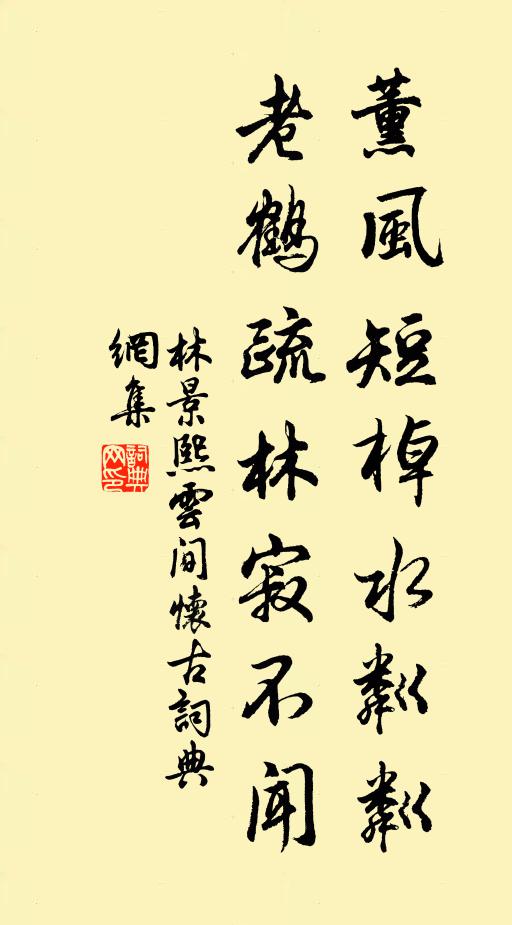 薰風短棹水粼粼
老鶴疏林寂不聞
林景熙雲間懷古詞典
網集
詞典網印